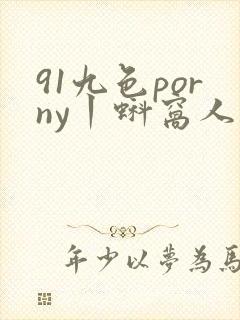 91九色por
ny丨蝌窝人
年少以夢為馬